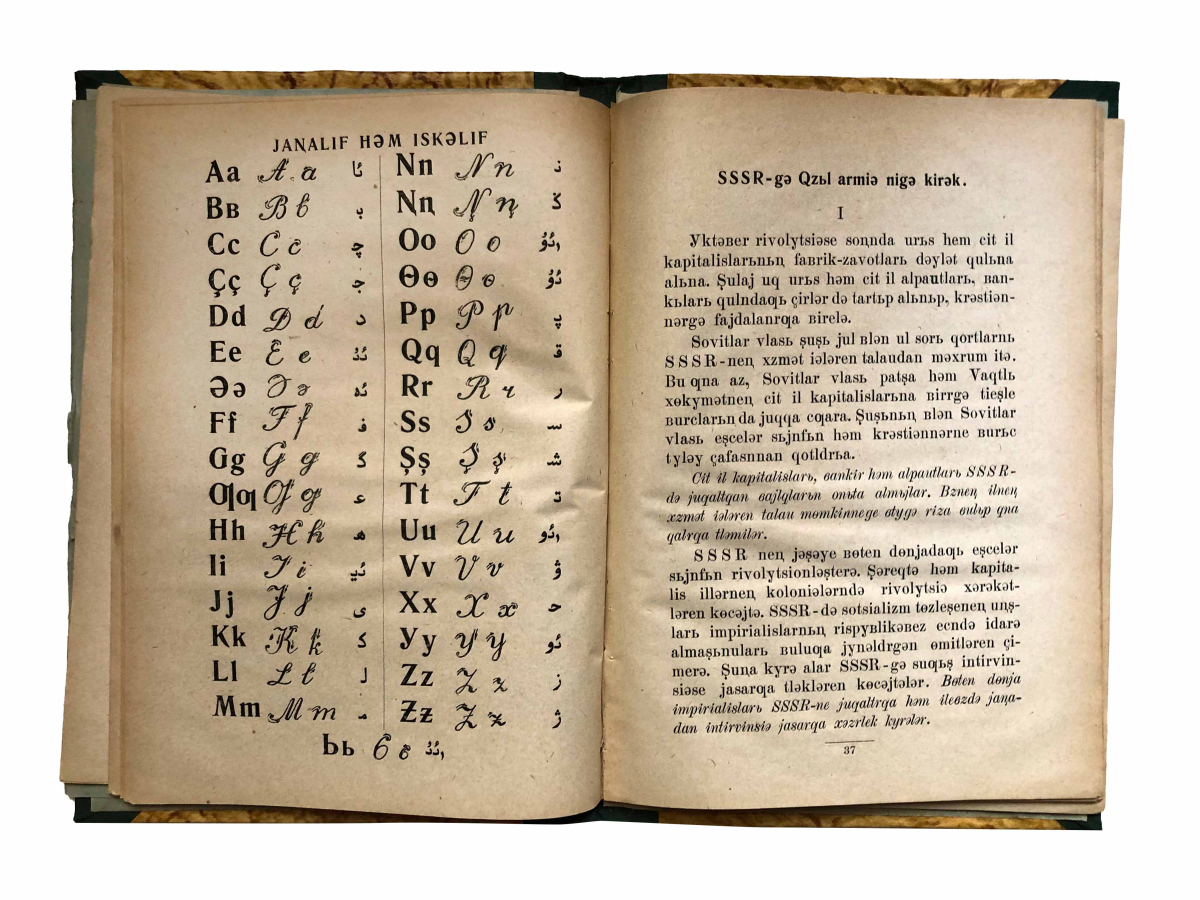 JAŅALIF HƏM ISKƏLIF
Aa A a ئا
Bʙ B b ب
Cc C c چ
Çç Ç ç ج
Dd D d د
Ee E e ئێ
Əə Ə ə ئە
Ff F f ف
Gg G g گ
Ƣƣ Ƣ ƣ ع
Hh H h ھ
Ii I i ئي
Jj J j ی
Kk K k ک
Ll L l ل
Mm M m م
Nn N n ن
Ꞑꞑ Ꞑ ꞑ ڭ
Oo O o
Ɵɵ Ɵ ɵ
Pp P p پ
Qq Q q ق
Rr R r ر
Ss S s س
Şş Ş ş ش
Tt T t ت
Uu U u
Vv V v ۋ
Xx X x ح
Уy У y ئو
Zz Z z ز
Ƶƶ Ƶ ƶ ژ
Ьь Ь ь
SSSR-gə Qzьl armiə nigə kirək.
I
Уktəʙer rivolytsiəse soꞑnda urьs hem cit il
kapitalislarьnьꞑ faʙrik-zavotlarь dəylət qulьna
alьna. Şulaj uq urьs həm cit il alpautlarь, ʙan-
kьlarь qulndaƣь çirlər də tartьp alьnьp, krəstiən-
nərgə fajdalanrƣa ʙirelə.
Sovitlar vlasь şuşь jul ʙlən ul sorь qortlarnь
SSSR-neꞑ xzmət iələren talaudan məxrum itə.
Bu ƣna az, Sovitlar vlasь patşa həm Vaqtlь
xɵkymətneꞑ cit il kapitalislarьna birrgə tieşle
ʙurclarьn da juqqa cƣara. Şuşьnьꞑ ʙlən Sovitlar
vlasь eşcelər sьjnfьn həm krəstiənnərne ʙurьc
tyləy çafasnnan qotldrьa.
Cit il kapitalislarь, ʙankir həm alpautlarь SSSR-
də juqaltqan ʙajlqlarьn onьta almьjlar. Bzneꞑ ilneꞑ
xzmət iələren talau mɵmkinnege ʙtygə riza ʙulьp qna
qalrƣa tləmilər.
SSSR neꞑ jəşəye ʙɵten dɵnjadaƣь eşcelər
sьjnfьn rivolytsionləşterə. Şəreqtə həm kapita-
lis illərneꞑ koloniələrndə rivolytsiə xərəkət-
ləren kɵcəjtə. SSSR-də sotsializm tɵzleşeneꞑ uꞑş-
larь impirialislarnьꞑ rispyʙlikəʙez ecndə idarə
almaşьnularь ʙuluƣa jynəldrgən ɵmitləren çi-
merə. Şuꞑa kyrə alar SSSR-gə suƣьş intirvin-
siəse jasarƣa tləkləren kɵcəjtələr. Bɵten dɵnja
impirialislarь SSSR-ne juqaltrƣa həm ileʙzdə jaꞑa-
dan intirvinsiə jasarƣa xəzrlek kyrələr.
37